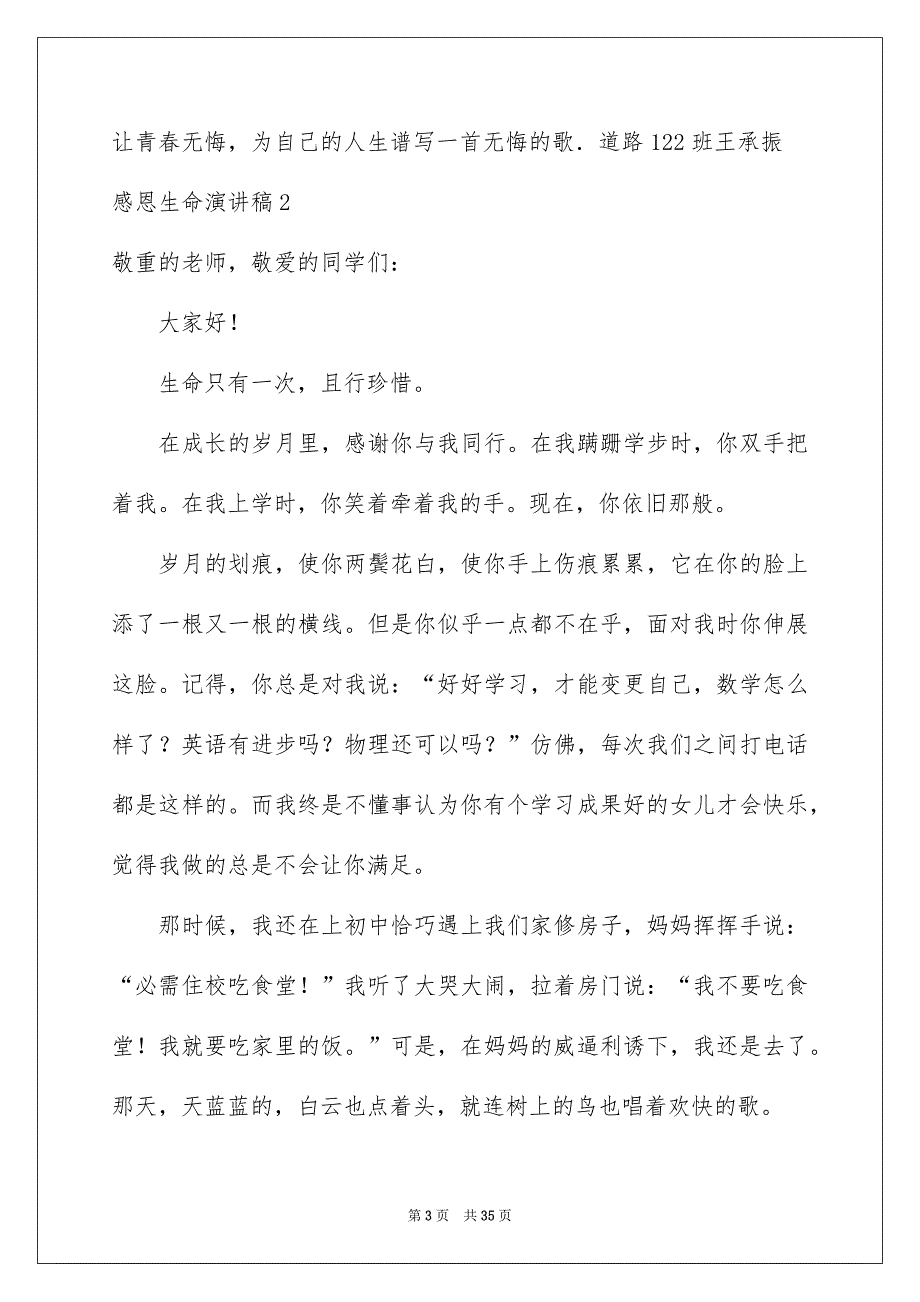 让青春无悔，为自己的人生谱写一首无悔的歌．道路 122 班王承振
感恩生命演讲稿 2
敬重的老师，敬爱的同学们：
大家好！
生命只有一次，且行珍惜。
在成长的岁月里，感谢你与我同行。在我蹒跚学步时，你双手把
着我。在我上学时，你笑着牵着我的手。现在，你依旧那般。
岁月的划痕，使你两鬓花白，使你手上伤痕累累，它在你的脸上
添了一根又一根的横线。但是你似乎一点都不在乎，面对我时你伸展
这脸。记得，你总是对我说：“好好学习，才能变更自己，数学怎么
样了？英语有进步吗？物理还可以吗？”仿佛，每次我们之间打电话
都是这样的。而我终是不懂事认为你有个学习成果好的女儿才会快乐，
觉得我做的总是不会让你满足。
那时候，我还在上初中恰巧遇上我们家修房子，妈妈挥挥手说：
“必需住校吃食堂！”我听了大哭大闹，拉着房门说：“我不要吃食
堂！我就要吃家里的饭。”可是，在妈妈的威逼利诱下，我还是去了。
那天，天蓝蓝的，白云也点着头，就连树上的鸟也唱着欢快的歌。
第 3 页 共 35 页